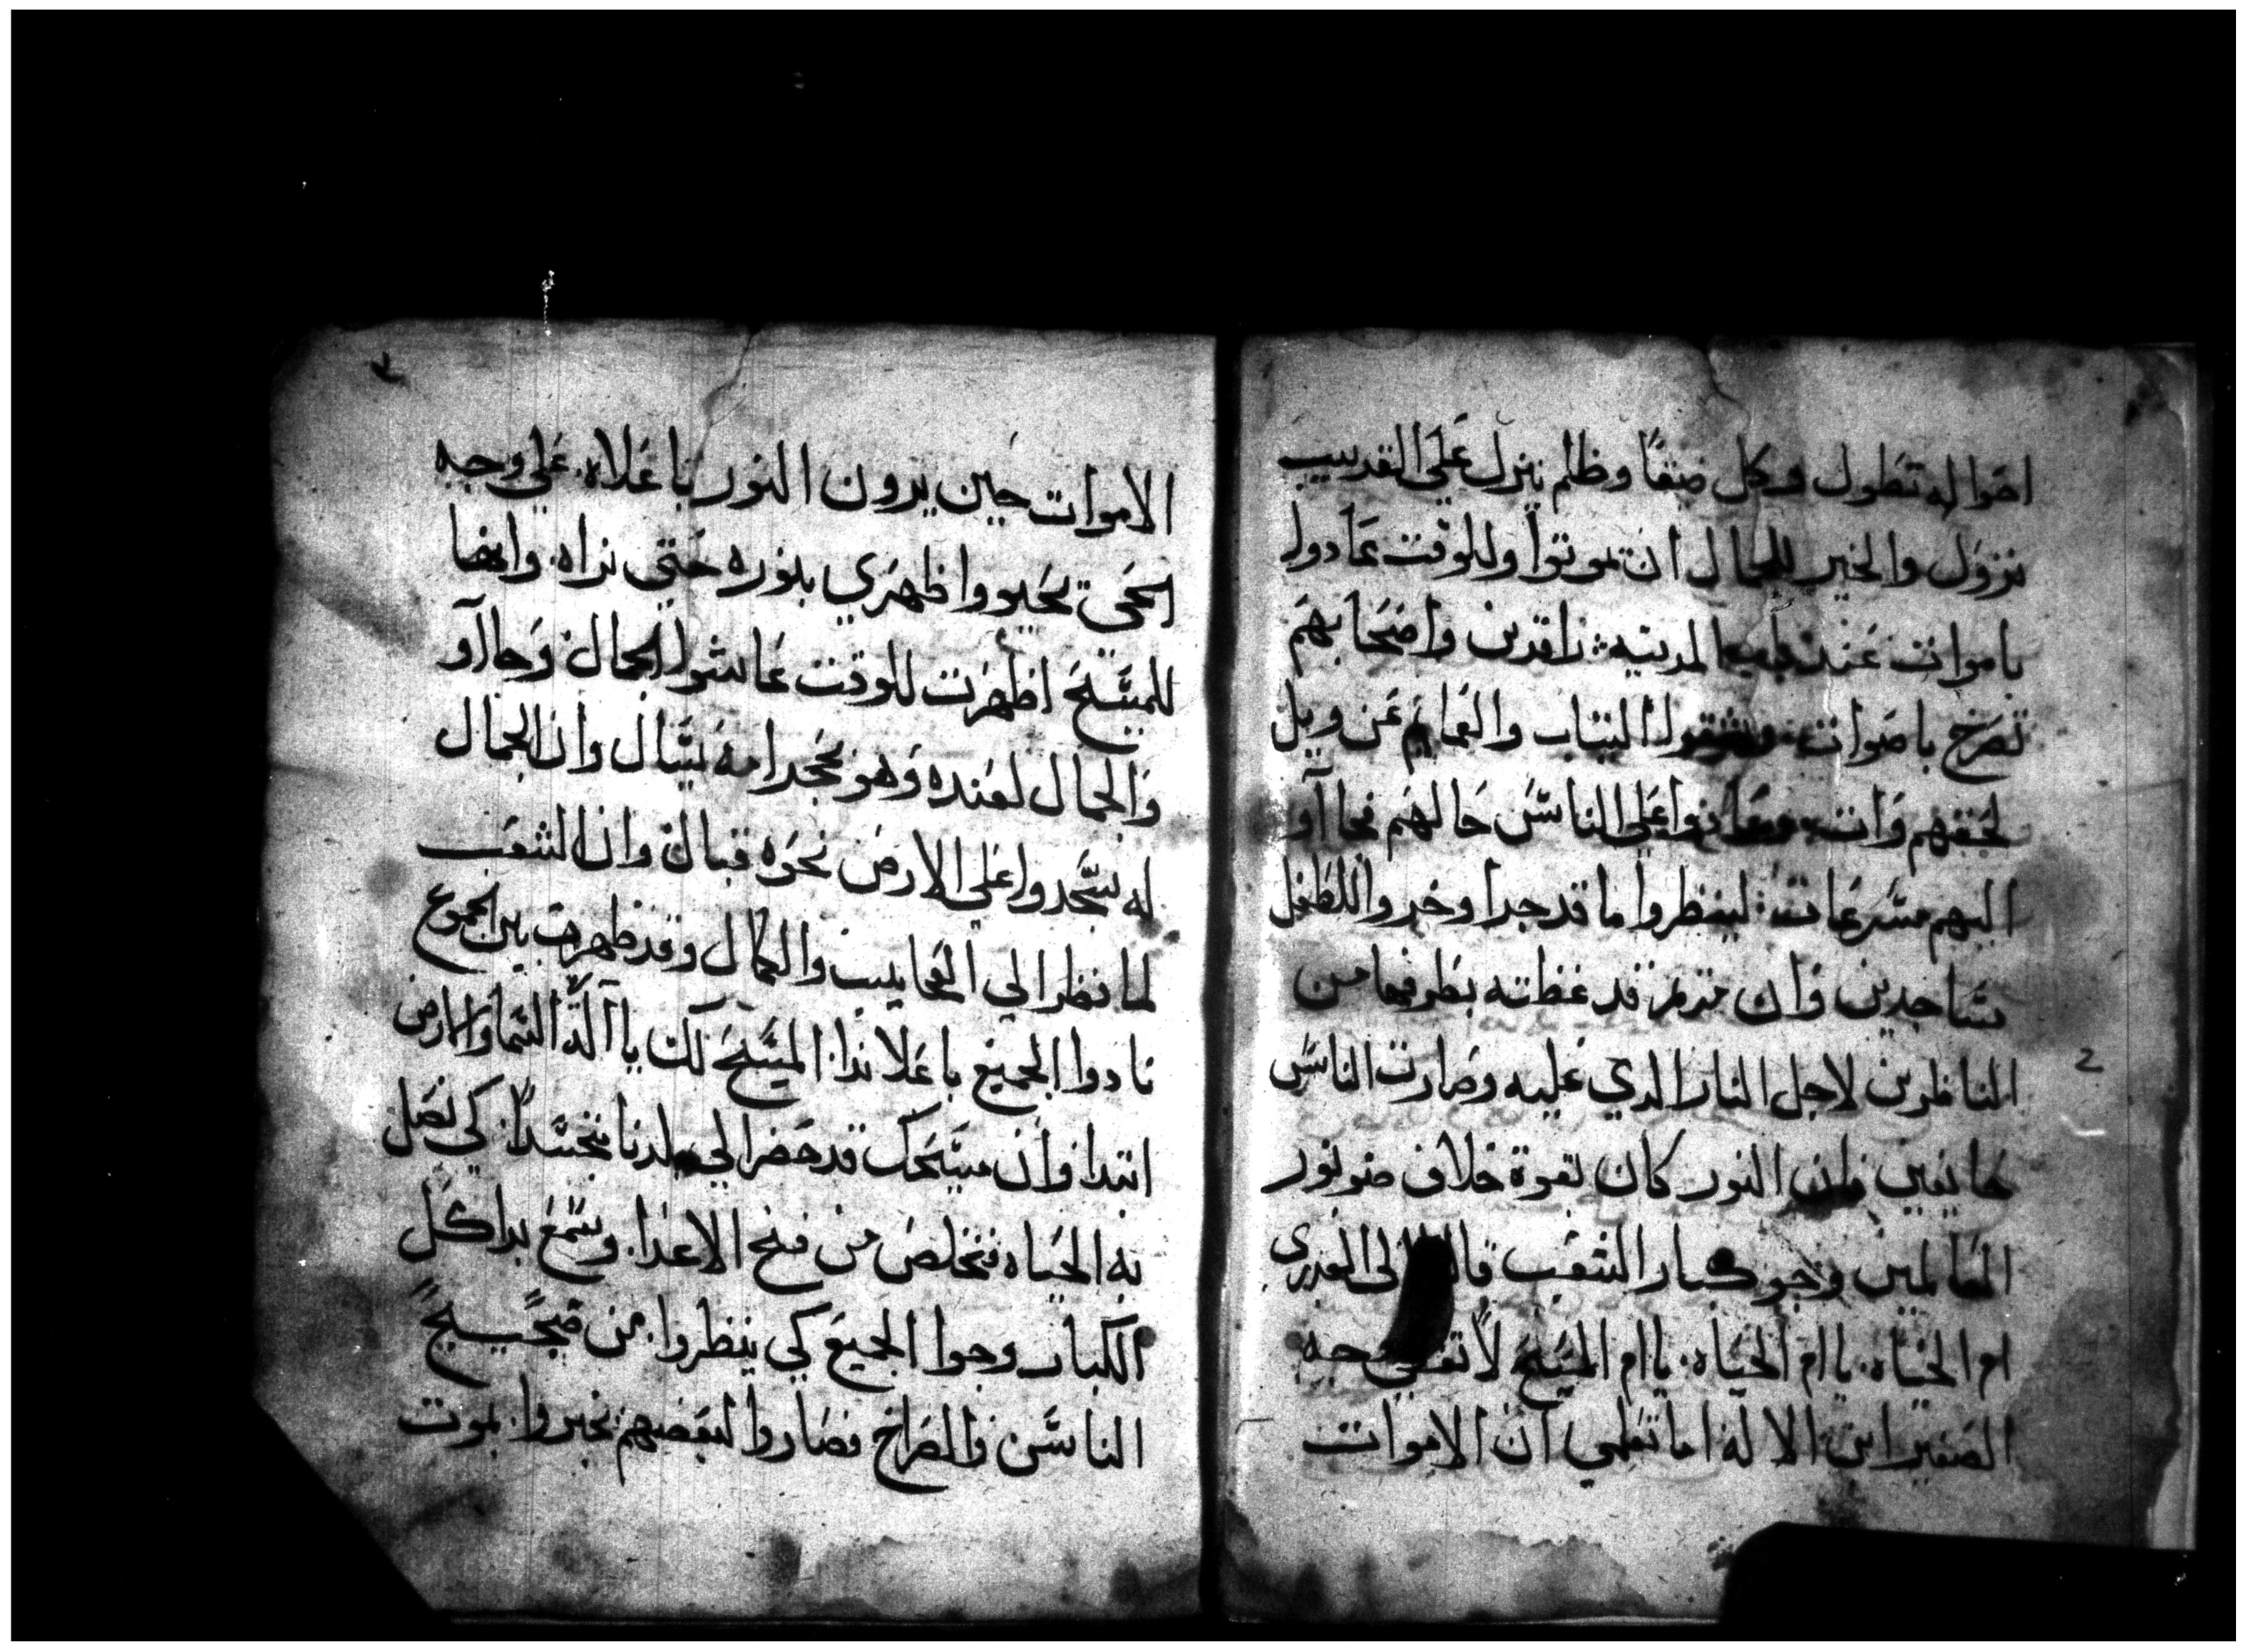 احواله تطول وكل ضيقا وظلم ينزل علي القديب
نزول والخير للجمال ان يموتوا وللوقت عادوا
باموات عند المدينه راقدين واضحابهم
تصرخ باصوات التياب والعمايم عن وبل
لحقهم وات علي الناس حالهم فجاآو
اليهم مسرعات لينظروا ما قد جرا وخروا للطفل
ساجدين وان مريم قد غطته بطرفها من
الناظرين لاجل النار الدي عليه وصارت الناس
خايفين وان النور كان بقوة خلاف ضو نور
العالمين وجو كبار الشعب الى العدرى
ام الحياه يا ام الحياه يا ام المسيح لا وجه
الصغير ابن الالاه اما تعلمي ان الاموات
2
الاموات حين يرون النور باعلاه علي وجه
يحيو واظهري بنوره حتي نراه وايضا
للمسيح اظهرت للوقت عاشوا الجمال وجاآو
والجمال لعنده وهو بيتال وان الجمال
له سجدوا علي الارض نحوه قبال وان الشعب
لما نظر الي العجايب والكمال وقد ظهرت بين الجموع
نادوا الجميع باعلا ندا المسبح لك يا آله السما والارض
ابتدا وان مسيحك قد حضر الي بلدنا متجسدا كي نصل
به الحياه فنخلص من فخ الاعدا وسمع بدا كل
الكبار وجوا الجميع كي ينظروا من ضجيج
الناس والصراخ فصاروا لبعضهم يخبروا بموت